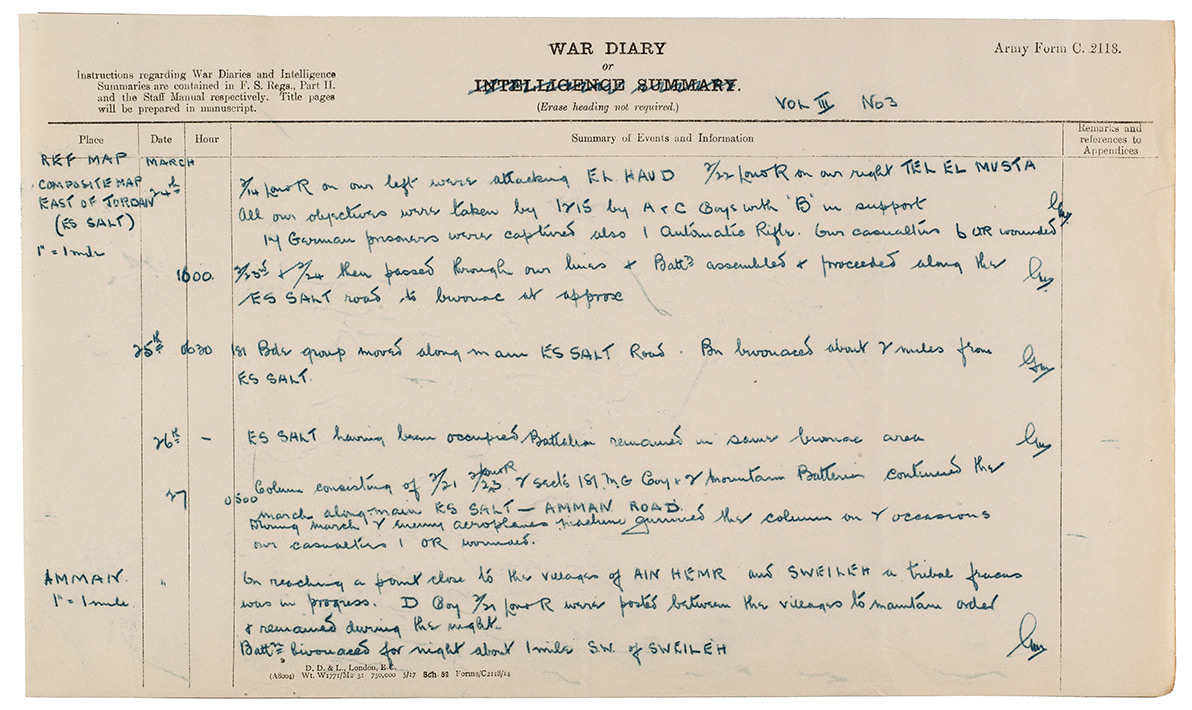 WAR DIARY
or
INTELLIGENCE SUMMARY.
(Erase heading not required.)
Army Form C. 2118.
Instructions regarding War Diaries and Intelligence
Summaries are contained in F. S. Regs., Part II.
and the Staff Manual respectively. Title pages
will be prepared in manuscript.
VOL III No 3
Place Date Hour Summary of Events and Information Remarks and references to Appendices
REF MAP MARCH
COMPOSITE MAP 24th 2/14 Lond R on our left were attacking EL HAUD 2/22 Lond R on our right TEL EL MUSTA
EAST OF JORDAN All our objectives were taken by 1215 by A & C Coys with 'B' in support
(ES SALT) 14 German prisoners were captured also 1 Automatic Rifle. Our casualties 6 OR wounded
1" = 1 mile
1600. 2/23rd & 2/24 then passed through our lines & Battn assembled & proceeded along the
ES SALT road to bivouac at approx
25th 0630 181 Bde group moved along main ES SALT Road. Bn bivouaced about 2 miles from
ES SALT.
26th - ES SALT having been occupied Battalion remained in same bivouac area
27 0500 Column consisting of 2/21 2/23 Lond R 2 sects 181 M.G Coy & 2 Mountain Batteries continued the
march along main ES SALT - AMMAN ROAD.
During march 2 enemy aeroplanes machine gunned the column on 2 occasions
our casualties 1 OR wounded.
AMMAN. " On reaching a point close to the villages of AIN HEMR and SWEILEH a tribal fracas
1" = 1 mile was in progress. D Coy 2/21 Lond R were posted between the villages to maintain order
& remained during the night.
Battn bivouaced for night about 1 mile S.W. of SWEILEH
D. D. & L., London, E.C.
(A8004) Wt. W1771/M2 31 750,000 5/17 Sch. 52 Forms/C2118/14